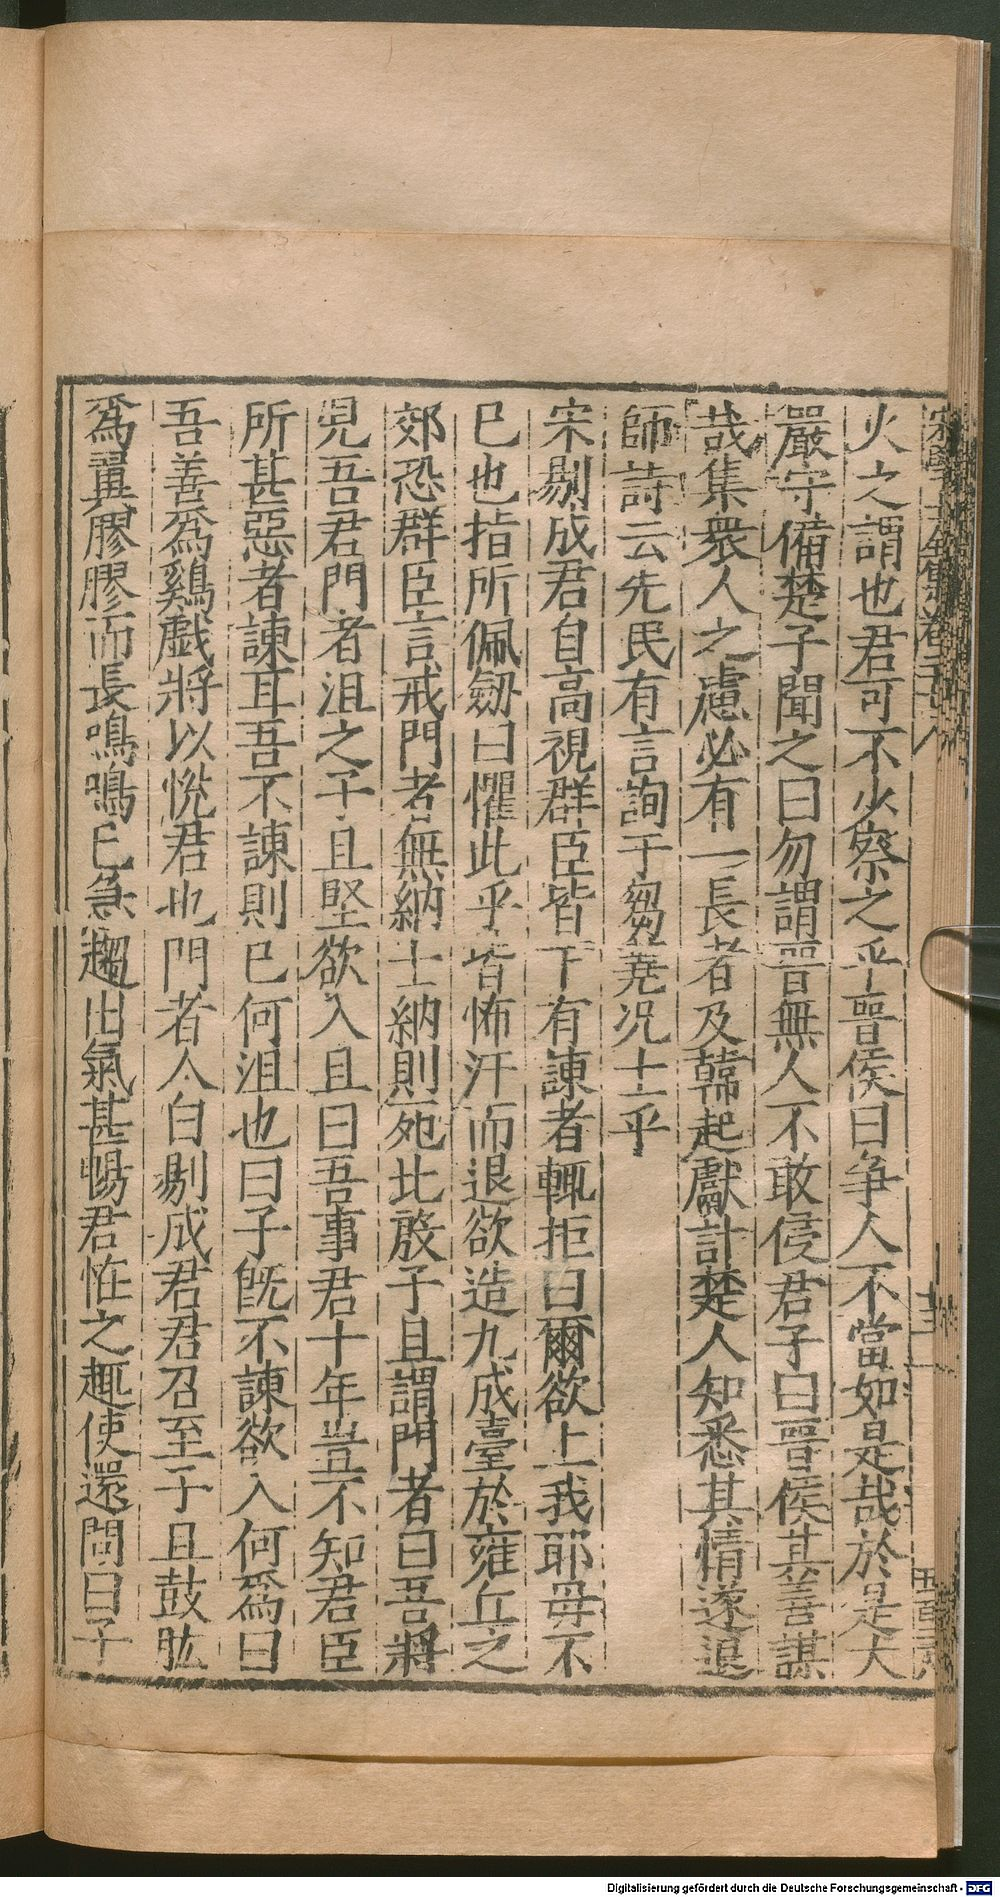 火之謂也君可不少察之乎晉侯曰爭人不當如是哉於是大
嚴守備楚子聞之曰勿謂晉無人不敢侵君子曰晉侯其善謀
哉集衆人之慮必有一長者及韓起獻計楚人知悉其情遂退
師詩云先民有言詢于芻蕘况士乎
宋剔成君自高視群臣皆下有諫者輒拒曰爾欲上我耶毋不
已也指所佩劒曰懼此乎皆怖汗而退欲造九成臺於雍丘之
郊恐群臣言戒門者無納士納則死比殷子且謂門者曰吾將
見吾君門者沮之子且堅欲入且曰吾事君十年豈不知君臣
所甚惡者諫耳吾不諫則已何沮也曰子旣不諫欲入何爲曰
吾善爲鷄戱將以悅君也門者人白剔成君君召至子且鼓肱
爲翼膠膠而長鳴鳴已急趨出氣甚暢君恠之輙使還問曰子
Digitalisierung gefördert durch die Deutsche Forschungsgemeinschaft - DFG